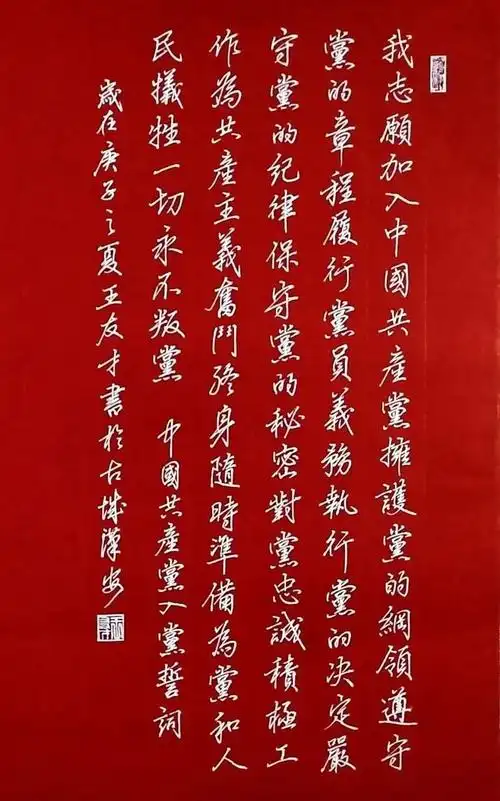 我志願加入中國共產黨擁護黨的綱領遵守
黨的章程履行黨員義務執行黨的决定嚴
守黨的紀律保守黨的秘密對黨忠誠積極工
作為共產主義奮鬥終身隨時準備為黨和人
民犧牲一切永不叛黨 中國共產黨入黨誓詞
歲在庚子之夏王友才書於古城漢安